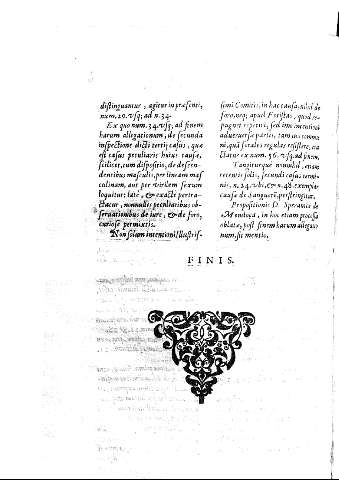 distinguuntur, agitur in præsenti,
num. 20. vsq; ad n. 34.
Ex quo num. 34. vsq; ad finem
harum allegationum, de secunda
inspectione dicti tertij casus, quæ
est casus peculiaris huius causæ,
scilicet, cum dispositio, de descen-
dentibus masculis, per lineam mas
culinam, aut per virilem sexum
loquitur: late, & exacte pertra-
ctatur, nonnullis peculiaribus ob-
seruationibus de iure, & de foro,
curiose permixtis.
Non solum intentioni Illustris-
simi Comitis, in hac causa, nihil de
foro,
pugnet reperiri, sed imo intentioni
aduersæ partis, tam ius commu
ne, quã forales regulas resistere, tra
ctatur ex num. 36. vsq; ad finem.
Tangiturque nonnihil, enum
recensis solis, secundi casus termi-
nis, n. 24. vbi, & n. 48. exemplar
causæ de Sanguessa, perstringitur.
Propositionis D. Sperantis de
Mendoça, in hoc etiam processu
oblatæ, post finem harum allegatio
num, fit mentio.
FINIS.